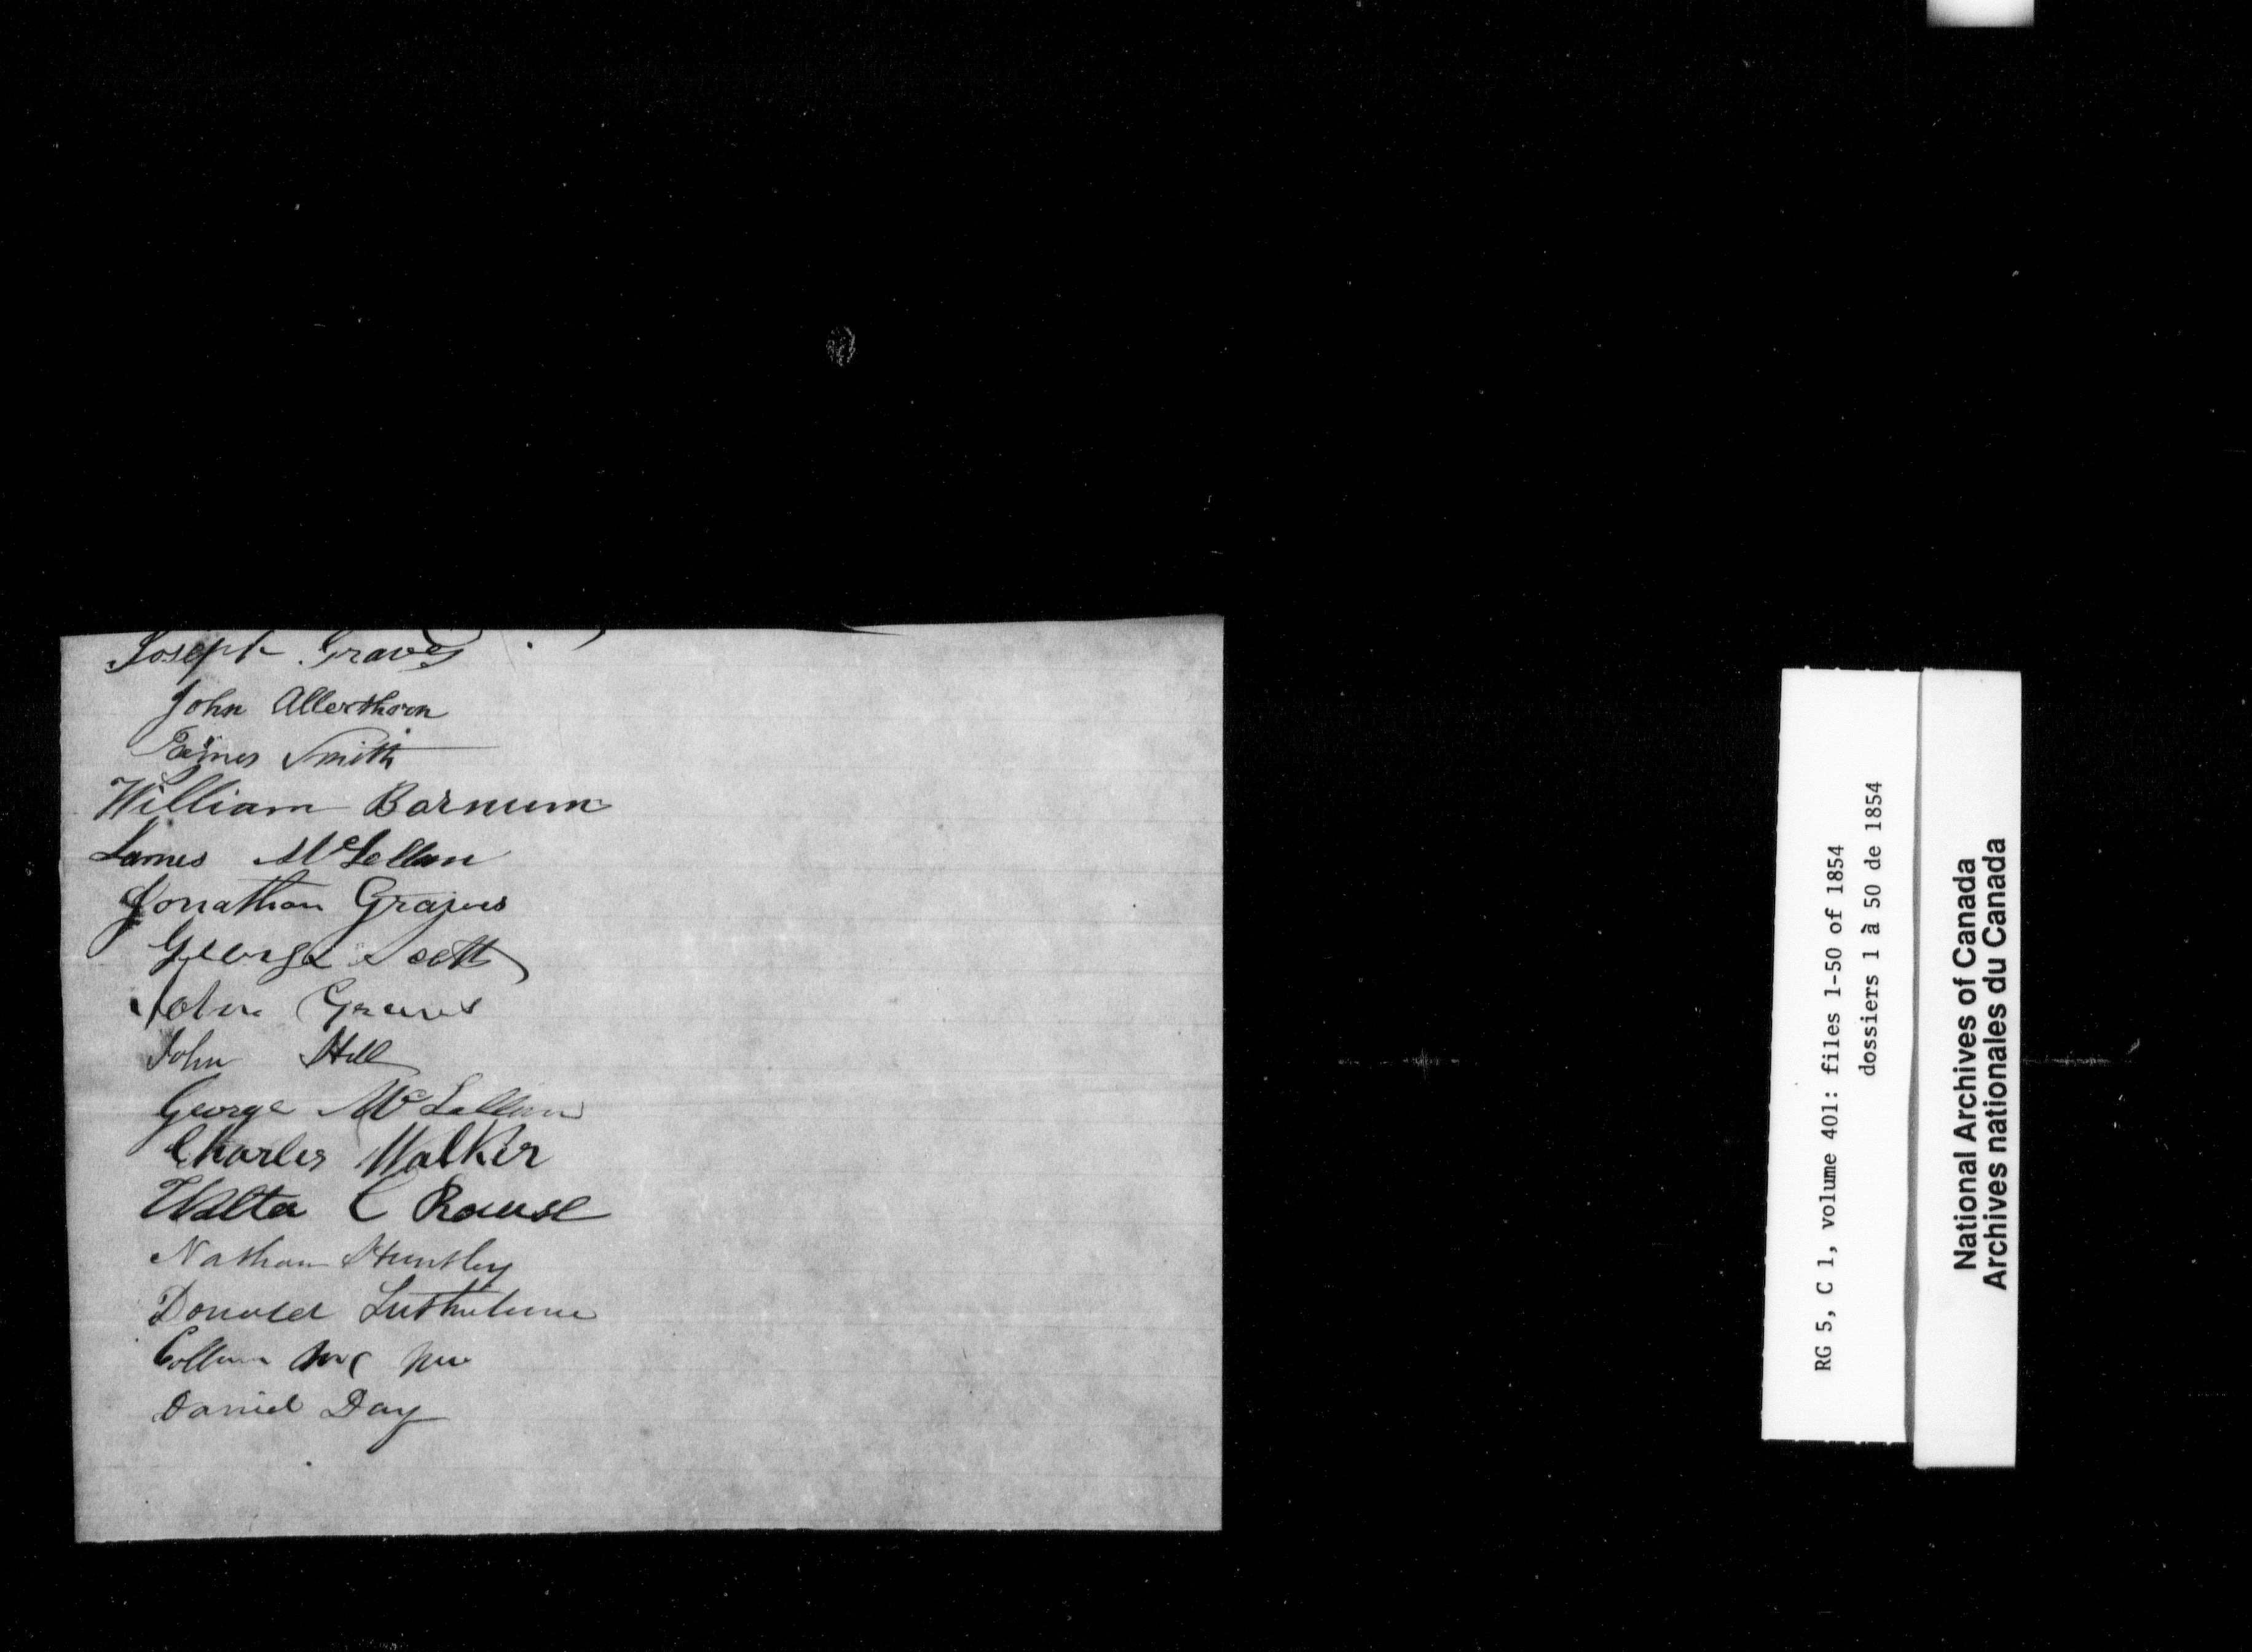 Joseph Graves
John Allerthorn
James Smith
William Barnum
James McLellan
Jonathan Graves
George Scott
John Graves
John Hill
George McLellan
Charles Walker
Walter C Rouse
Nathan Huntley
Donald
Collum Mc
Daniel Day
RG 5, C 1, volume 401: files 1-50 of 1854
dossiers 1 à 50 de 1854
National Archives of Canada
Archives nationales du Canada